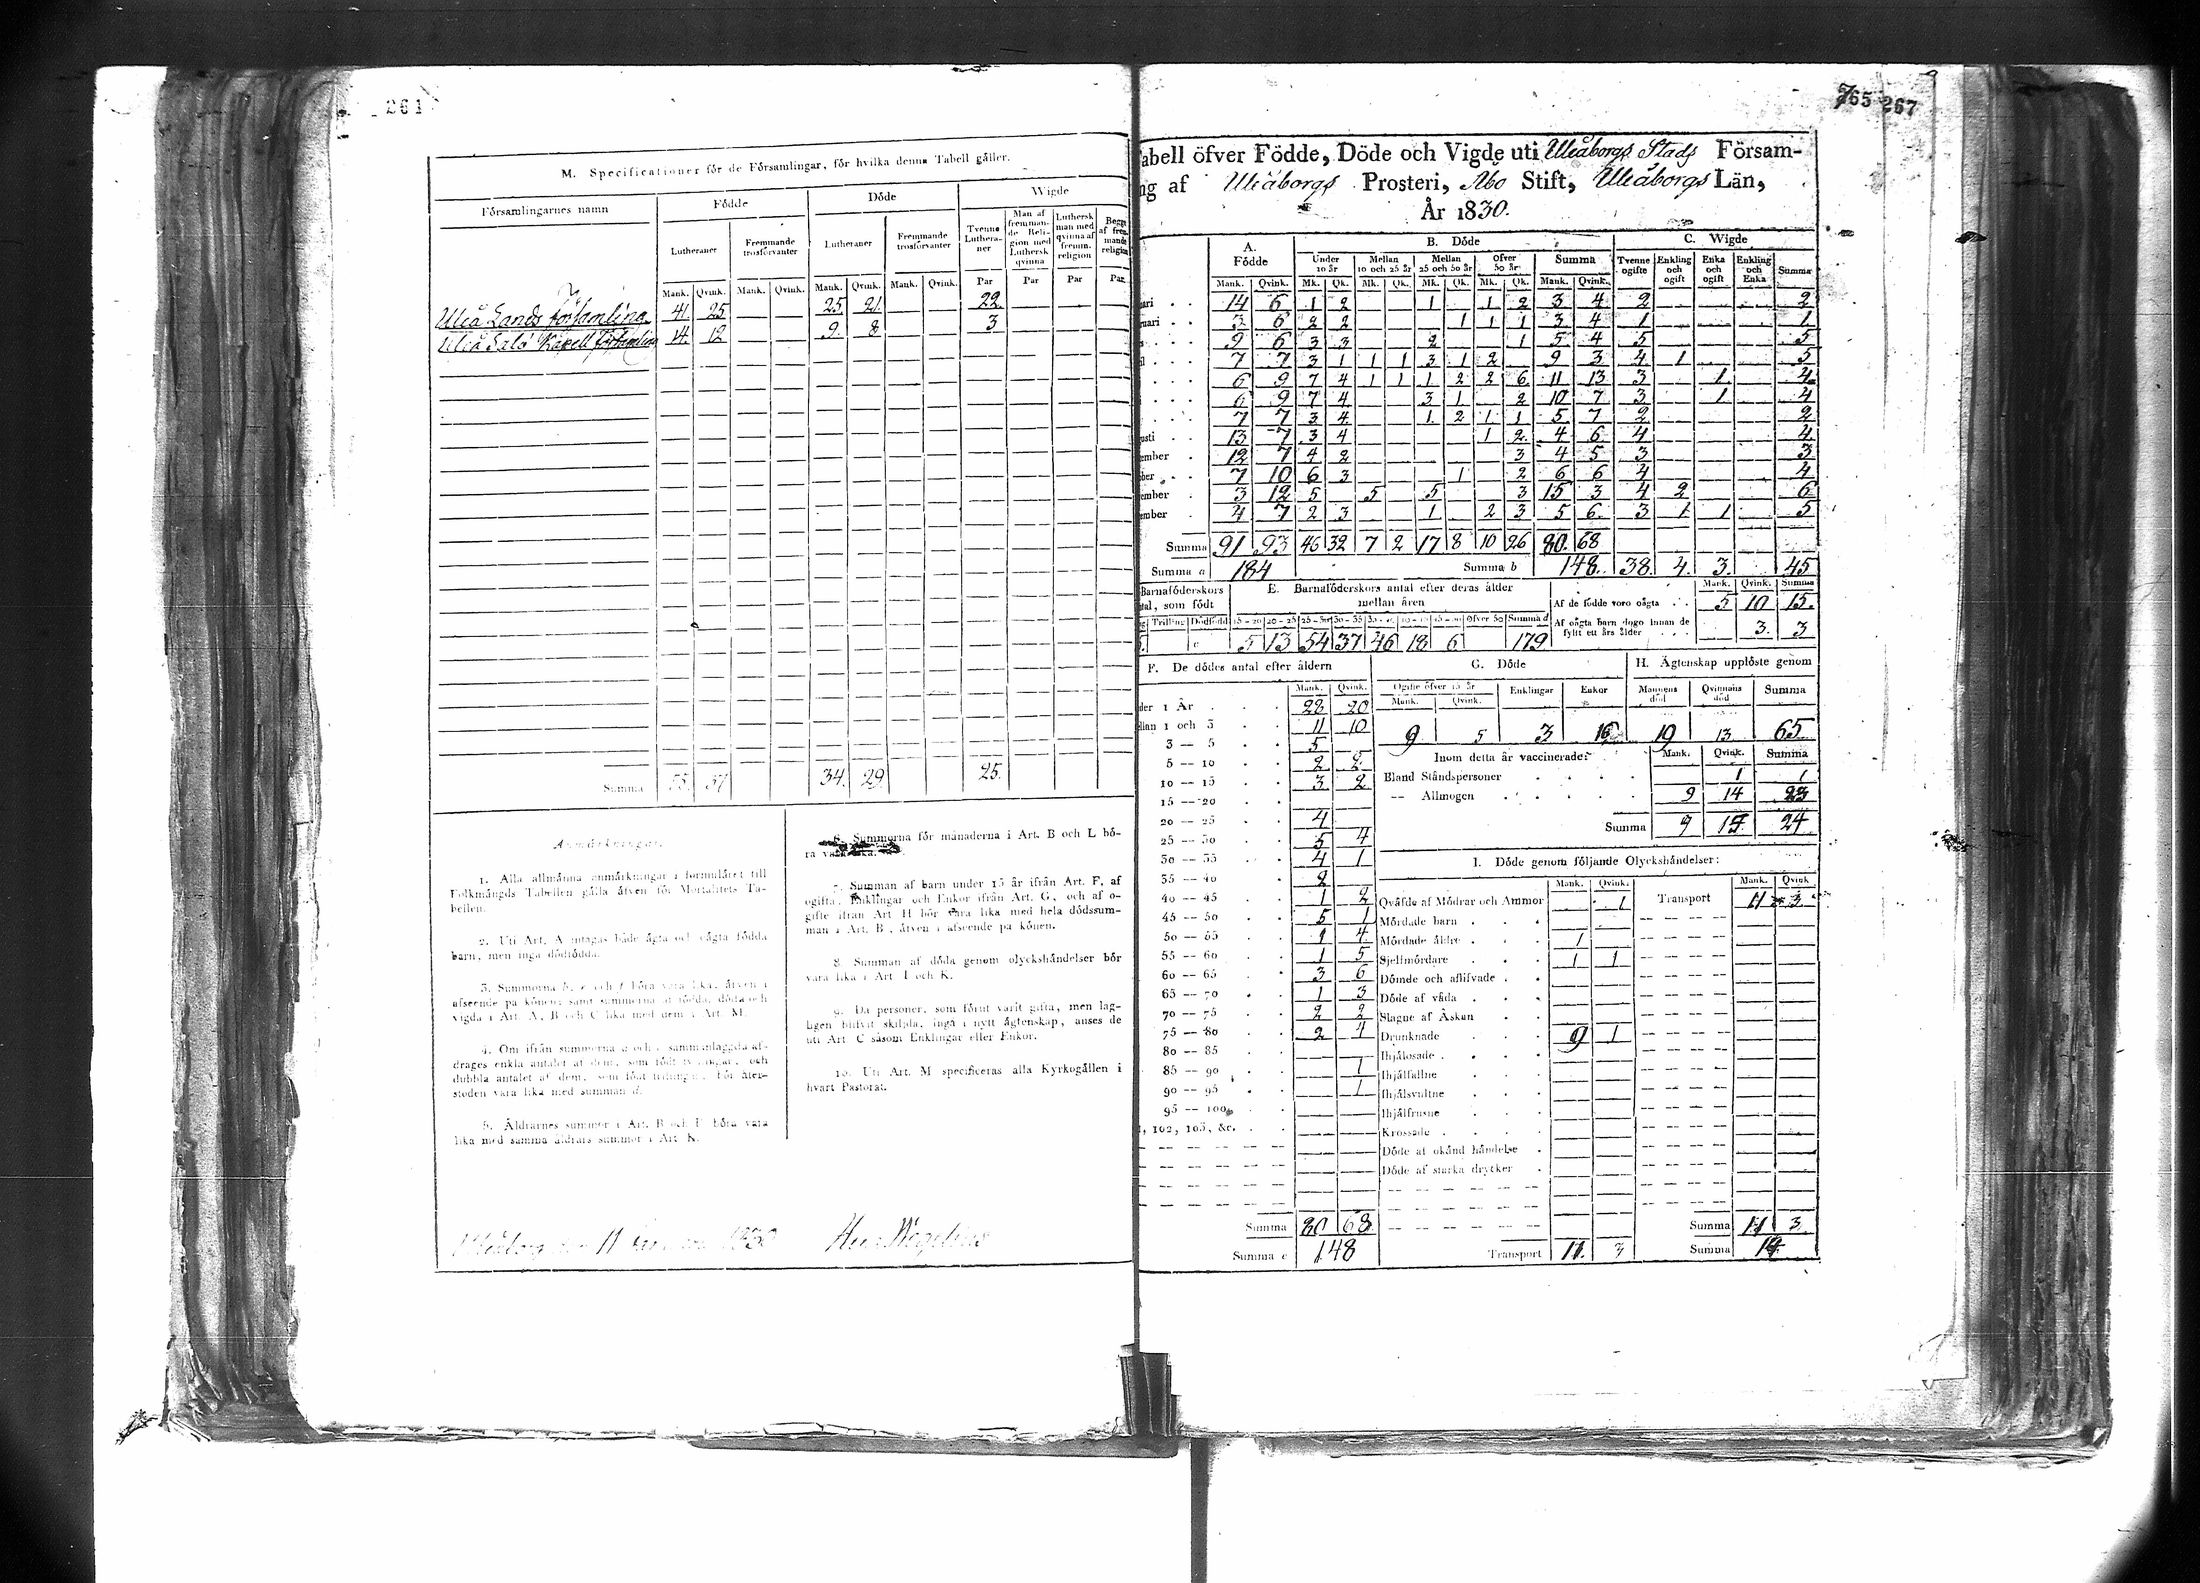 261
M. Specificationer för de Församlingar, för hvilka denna Tabell gäller.
Församlingarnes namn Födde Döde Wigde
Lutheraner Fremmande trosförvanter Lutheraner Fremmande trosförvanter Tvenne Lutheraner Man af fremmande Religion med Luthersk qvinna Luthersk man med qvinna af fremm. religion Begge af fremmande religion
Mank. Qvink. Mank. Qvink. Mank. Qvink. Mank. Qvink. Par Par Par Par
Uleå Lands församling 41. 25 25. 21. 22.
Uleå Salo Kapell församling 14. 12 9. 8 3
Summa 55. 37 34. 29 25.
Anmärkningar.
1. Alla allmänna anmärkningar i formuläret till
Folkmängds Tabellen gälla äfven för Mortalitets Ta-
bellen.
2. Uti Art. A intagas både ägta och oägta födda
barn, men inga dödfödda.
3. Summorna b, e och f böra vara lika, äfven i
afseende på könen; samt summorna af födda, döda och
vigda i Art. A, B och C lika med dem i Art. M.
4. Om ifrån summorna a och c sammanlaggda af-
drages enkla antalet af dem, som födt tvillingar, och
dubbla antalet af dem, som födt trillingar, bör åter-
stoden vara lika med summan d.
5. Åldrarnes summor i Art. B och F böra vara
lika med samma åldrars summor i Art. K.
6. Summorna för månaderna i Art. B och L bö-
ra vara lika.
7. Summan af barn under 15 år ifrån Art. F, af
ogifta, Enklingar och Enkor ifrån Art. G, och af o-
gifte ifrån Art H bör vara lika med hela dödssum-
man i Art. B, äfven i afseende på könen.
8. Summan af döda genom olyckshändelser bör
vara lika i Art. I och K.
9. Da personer, som förut varit gifta, men lag-
ligen blifvit skiljda, ingå i nytt ägtenskap, anses de
uti Art. C såsom Enklingar eller Enkor.
10. Uti Art. M specificeras alla Kyrkogällen i
hvart Pastorat.
Uleåborg 11 1830
265 267
abell öfver Födde, Döde och Vigde uti Uleåborgs Stads Försam-
ng af Uleåborgs Prosteri, Åbo Stift, Uleåborgs Län,
År 1830.
A. Födde B. Döde C. Wigde
Under 10 år Mellan 10 och 25 år Mellan 25 och 50 år Öfver 50 år Summa Tvenne ogifte Enkling och ogift Enka och ogift Enkling och Enka Summa
Mank. Qvink. Mk. Qk. Mk. Qk. Mk. Qk. Mk. Qk. Mank. Qvink.
uari 14 6 1 2 1 1 2 3 4 2 2
ruari 3 6 2 2 1 1 1 3 4 1 1
s 9 6 3 3 2 1 5 4 5 5
il 7 7 3 1 1 1 3 1 2 9 3 4 1 5
6 9 7 4 1 1 1 2 2 6 11 13 3 1 4
6 9 7 4 3 1 2 10 7 3 1 4
7 7 3 4 1 2 1 1 5 7 2 2
usti 13 7 3 4 1 2 4 6 4 4
ember 12 7 4 2 3 4 5 3 3
ober 7 10 6 3 1 2 6 6 4 4
ember 3 12 5 5 5 3 15 3 4 2 6
ember 4 7 2 3 1 2 3 5 6 3 1 1 5
Summa 91 93 46 32 7 2 17 8 10 26 80. 68
Summa a 184 Summa b 148. 38. 4. 3. 45
Barnaföderskors tal, som födt E. Barnaföderskors antal efter deras ålder mellan åren Mank. Qvink. Summa
Af de födde voro oägta 5 10 15.
Af oägta barn dogo innan de fyllt ett års ålder 3. 3
Trilling Dödfödd 15-20 20-25 25-30 30-35 35-40 40-45 45-50 Öfver 50 Summa d
c 5 13 54 37 46 18 6 179
F. De dödes antal efter åldern G. Döde H. Ägtenskap upplöste genom
Mank. Qvink. Ogifte öfver 15 år Enklingar Enkor Mannens död Qvinnans död Summa
Mank. Qvink.
der 1 År 28 20
llan 1 och 3 11 10 9 5 3 16 10 13 65
3 — 5 5
5 — 10 2 2 Inom detta år vaccinerade: Mank. Qvink. Summa
10 — 15 3 2 Bland Ståndspersoner 1 1
15 — 20 — Allmogen 9 14 23
20 — 25 4
25 — 30 5 4 Summa 9 15 24
30 — 35 4 1 I. Döde genom följande Olyckshändelser:
35 — 40 2 Mank. Qvink. Mank. Qvink
40 — 45 1 2 Qväfde af Mödrar och Ammor 1 Transport 11 3
45 — 50 5 1 Mördade barn
50 — 55 1 4 Mördade äldre 1
55 — 60 1 5 Sjelfmördare 1 1
60 — 65 3 6 Dömde och aflifvade
65 — 70 1 3 Döde af våda
70 — 75 2 2 Slagne af Åskan
75 — 80 2 4 Drunknade 9 1
80 — 85 Ihjälosade
85 — 90 1 Ihjälfallne
90 — 95 1 Ihjälsvultne
95 — 100 Ihjälfrusne
, 102, 103, &c. Krossade
Döde af okänd händelse
Döde af starka drycker
Summa 80 68 Summa 11 3.
Summa e 148 Transport 11. 3 Summa 14